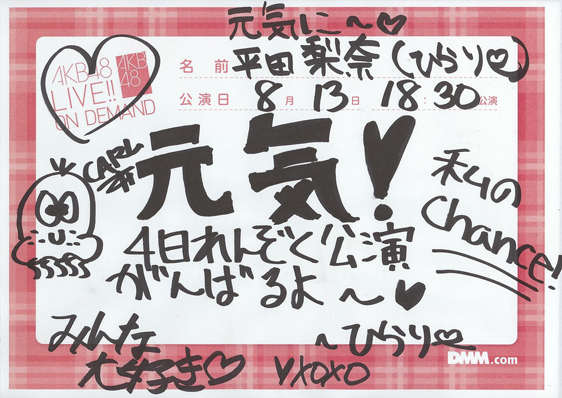 元気に〜♡
AKB48
LIVE!!
ON DEMAND
AKB
48
名前 平田梨奈(ひらり♡)
公演日 8月 13日 18:30公演
元気!
4日れんぞく公演
がんばるよ〜♥
私の
Chance!
みんな
大好き♡
♥xoxo
〜ひらり♡
DMM.com